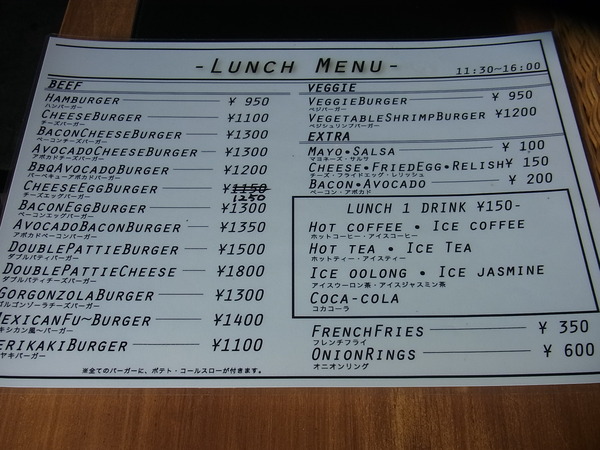 -LUNCH MENU-
11:30~16:00
BEEF
HAMBURGER ¥ 950
ハンバーガー
CHEESEBURGER ¥1100
チーズバーガー
BACONCHEESEBURGER ¥1300
ベーコンチーズバーガー
AVOCADOCHEESEBURGER ¥1300
アボカドチーズバーガー
BBQAVOCADOBURGER ¥1200
バーベキューアボカドバーガー
CHEESEEGGBURGER ¥1150
1250
チーズエッグバーガー
BACONEGGBURGER ¥1300
ベーコンエッグバーガー
AVOCADOBACONBURGER ¥1350
アボカドベーコンバーガー
DOUBLEPATTIEBURGER ¥1500
ダブルパティバーガー
DOUBLEPATTIECHEESE ¥1800
ダブルパティチーズバーガー
GORGONZOLABURGER ¥1300
ルゴンゾーラチーズバーガー
MEXICANFU~BURGER ¥1400
キシカン風~バーガー
ERIKAKIBURGER ¥1100
ヤキバーガー
※全てのバーガーに、ポテト・コールスローが付きます。
VEGGIE
VEGGIEBURGER ¥ 950
ベジバーガー
VEGETABLESHRIMPBURGER ¥1200
ベジシュリンプバーガー
EXTRA
MAYO•SALSA ¥ 100
マヨネーズ・サルサ
CHEESE•FRIEDEGG•RELISH ¥ 150
チーズ・フライドエッグ・レリッシュ
BACON•AVOCADO ¥ 200
ベーコン・アボカド
LUNCH 1 DRINK ¥150-
HOT COFFEE • ICE COFFEE
ホットコーヒー・アイスコーヒー
HOT TEA • ICE TEA
ホットティー・アイスティー
ICE OOLONG • ICE JASMINE
アイスウーロン茶・アイスジャスミン茶
COCA-COLA
コカコーラ
FRENCHFRIES ¥ 350
フレンチフライ
ONIONRINGS ¥ 600
オニオンリング